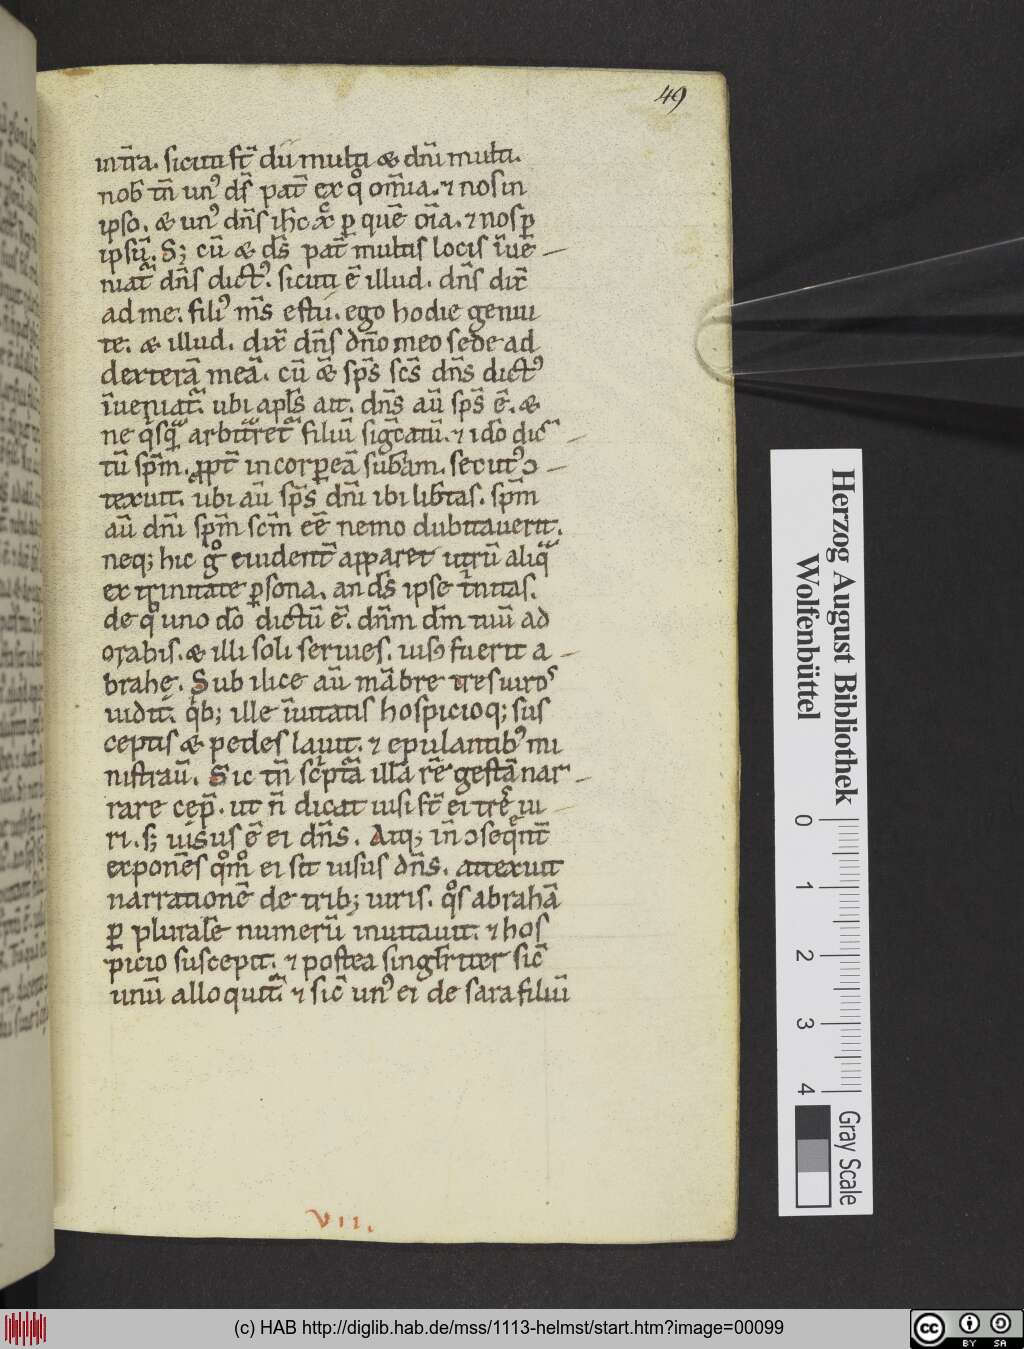 49
int̄ra. sicuti st̄ dii multi & dn̄i multi.
nob̄ tn̄ unꝰ ds̄ pat̄ ex qͦ om̄ia. ⁊ nos in
ipso. & unꝰ dn̄s ih̄c xp̄c ꝑ quē oīa. ⁊ nos ꝑ
ipsū. S; cū & ds̄ pat̄ multis locis īuē
niat̄ dn̄s dictꝰ. sicuti ē illud. dn̄s dix̄
ad me. filiꝰ m̄s es tu. ego hodie genui
te. & illud. dix̄ dn̄s dn̄o meo sede ad
dexterā meā. cū & sp̄s sc̄s dn̄s dictꝰ
īueniat̄. ubi apl̄s ait. dn̄s aū sp̄s ē. &
ne qͥsqᷓ arbitret̄ filiū sigͨcatū. ⁊ idō dic̄
tū sp̄m. ꝓpt̄ incorꝑeā sub̄am. secutꝰ ↄ
texuit. ubi aū sp̄s dn̄i ibi lib̄tas. sp̄m
aū dn̄i sp̄m sc̄m eē nemo dubitauerit.
neq; hic gͦ euident̄ apparet utrū aliqᷓ
ex trinitate ꝑsona. an ds̄ ipse tͥnitas.
de qͦ uno dō dictū ē. dn̄m dm̄ tuū ad
orabis. & illi soli seruies. uisꝰ fuerit a
brahę. Sub ilice aū mābre tres uiros
uidit. qͥb; ille īuitatis hospicioq; sus
ceptis & pedes lauit. ⁊ epulantibꝰ mi
nistrau̅. Sic tn̄ scͥptā illā rē gestā nar
rare cep̄. ut n̄ dicat uisi st̄ ei trēs ui
ri. s; uisus ē ei dn̄s. Atq; in̄ ↄseqͤnt̄
exponēs qͦmͦ ei sit uisus dn̄s. attexuit
narrationē de trib; uiris. qͦs abrahā
ꝑ pluralē numerū inuitauit. ⁊ hos
picio suscepit. ⁊ postea singl̄riter sic̄
unū alloquit̄ ⁊ sic̄ unꝰ ei de sara filiū
VII.
Herzog August Bibliothek
Wolfenbüttel
0 1 2 3 4
Gray Scale
(c) HAB http://diglib.hab.de/mss/1113-helmst/start.htm?image=00099
cc BY SA